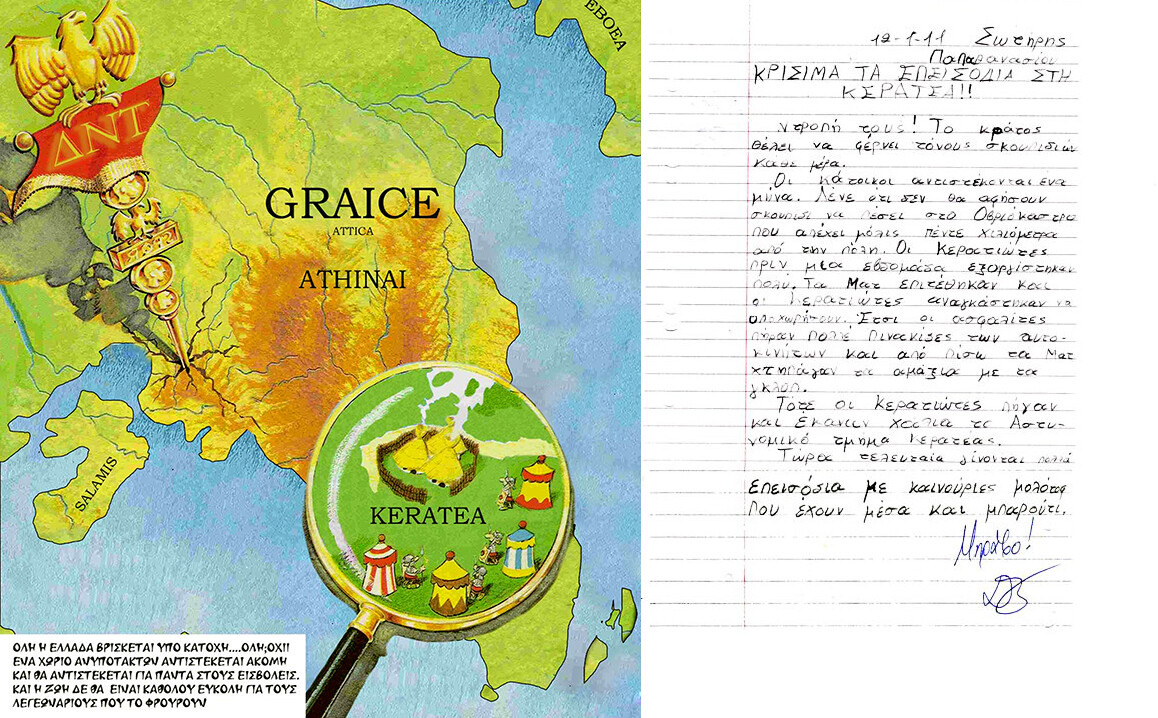 EBOEA
ΔΝΤ
GRAICE
ATTICA
ATHINAI
SALAMIS
KERATEA
ΟΛΗ Η ΕΛΛΑΔΑ ΒΡΙΣΚΕΤΑΙ ΥΠΟ ΚΑΤΟΧΗ....ΟΛΗ;ΟΧΙ!
ΕΝΑ ΧΩΡΙΟ ΑΝΥΠΟΤΑΚΤΩΝ ΑΝΤΙΣΤΕΚΕΤΑΙ ΑΚΟΜΗ
ΚΑΙ ΘΑ ΑΝΤΙΣΤΕΚΕΤΑΙ ΓΙΑ ΠΑΝΤΑ ΣΤΟΥΣ ΕΙΣΒΟΛΕΙΣ.
ΚΑΙ Η ΖΩΗ ΔΕ ΘΑ ΕΙΝΑΙ ΚΑΘΟΛΟΥ ΕΥΚΟΛΗ ΓΙΑ ΤΟΥΣ
ΛΕΓΕΩΝΑΡΙΟΥΣ ΠΟΥ ΤΟ ΦΡΟΥΡΟΥΝ
12-1-11 Σωτηρης
Παπαθανασίου
ΚΡΙΣΙΜΑ ΤΑ ΕΠΕΙΣΟΔΙΑ ΣΤΗ
ΚΕΡΑΤΕΑ!!
Ντροπή τους! Το κράτος
θέλει να φέρνει τόνους σκουπιδιών
καθε μέρα.
Οι κάτοικοι αντιστέκονται ένα
μήνα. Λένε ότι δεν θα αφήσουν
σκουπιδι να πέσει στο Οβριόκαστρο
που απέχει μόλις πέντε χιλιόμετρα
από την πόλη. Οι Κερατιώτες
πριν μια εβδομάδα εξοργίστηκαν
πολύ. Τα Ματ επιτέθηκαν και
οι κερατιώτες αναγκάστηκαν να
υποχωρήσουν. Έτσι οι ασφαλίτες
πήραν πολλέ πινακίδες των αυτο-
κινήτων και από πίσω τα Ματ
χτηπάγαν τα αμάξια με τα
γκλοπ.
Τότε οι Κερατιώτες πήγαν
και έκαναν χάλια το Αστυ-
νομικό τμημα Κερατέας.
Τώρα τελευταία γίνονται πολλά
επεισόδια με καινούριες μολότοφ
που έχουν μέσα και μπαρούτι.
Μπράβο!